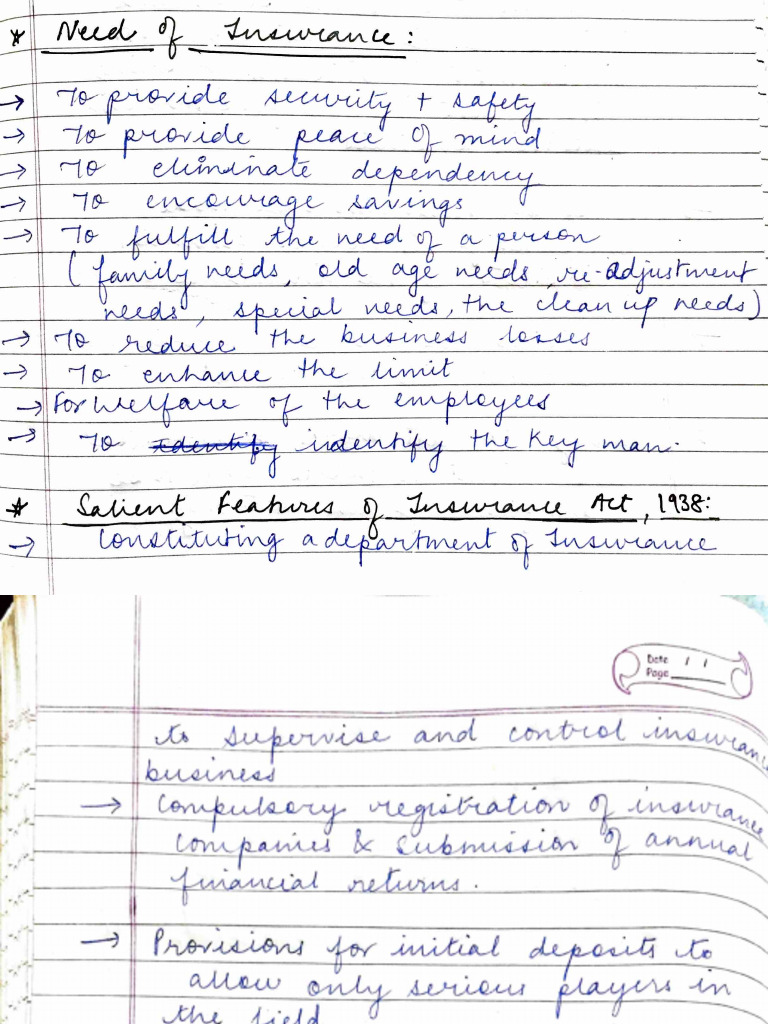 * Need of Insurance:
→ To provide security + safety
→ To provide peace of mind
→ To eliminate dependency
→ To encourage savings
→ To fulfill the need of a person
( family needs, old age needs, re-adjustment
needs, special needs, the clean up needs)
→ To reduce the business losses
→ To enhance the limit
→ For welfare of the employees
→ To indentify the key man.
* Salient Features of Insurance Act, 1938:
→ Constituting a department of Insurance
Date / /
Page
to supervise and control insurance
business
→ Compulsory registration of insurance
companies & submission of annual
financial returns.
→ Provisions for initial deposits to
allow only serious players in
the field